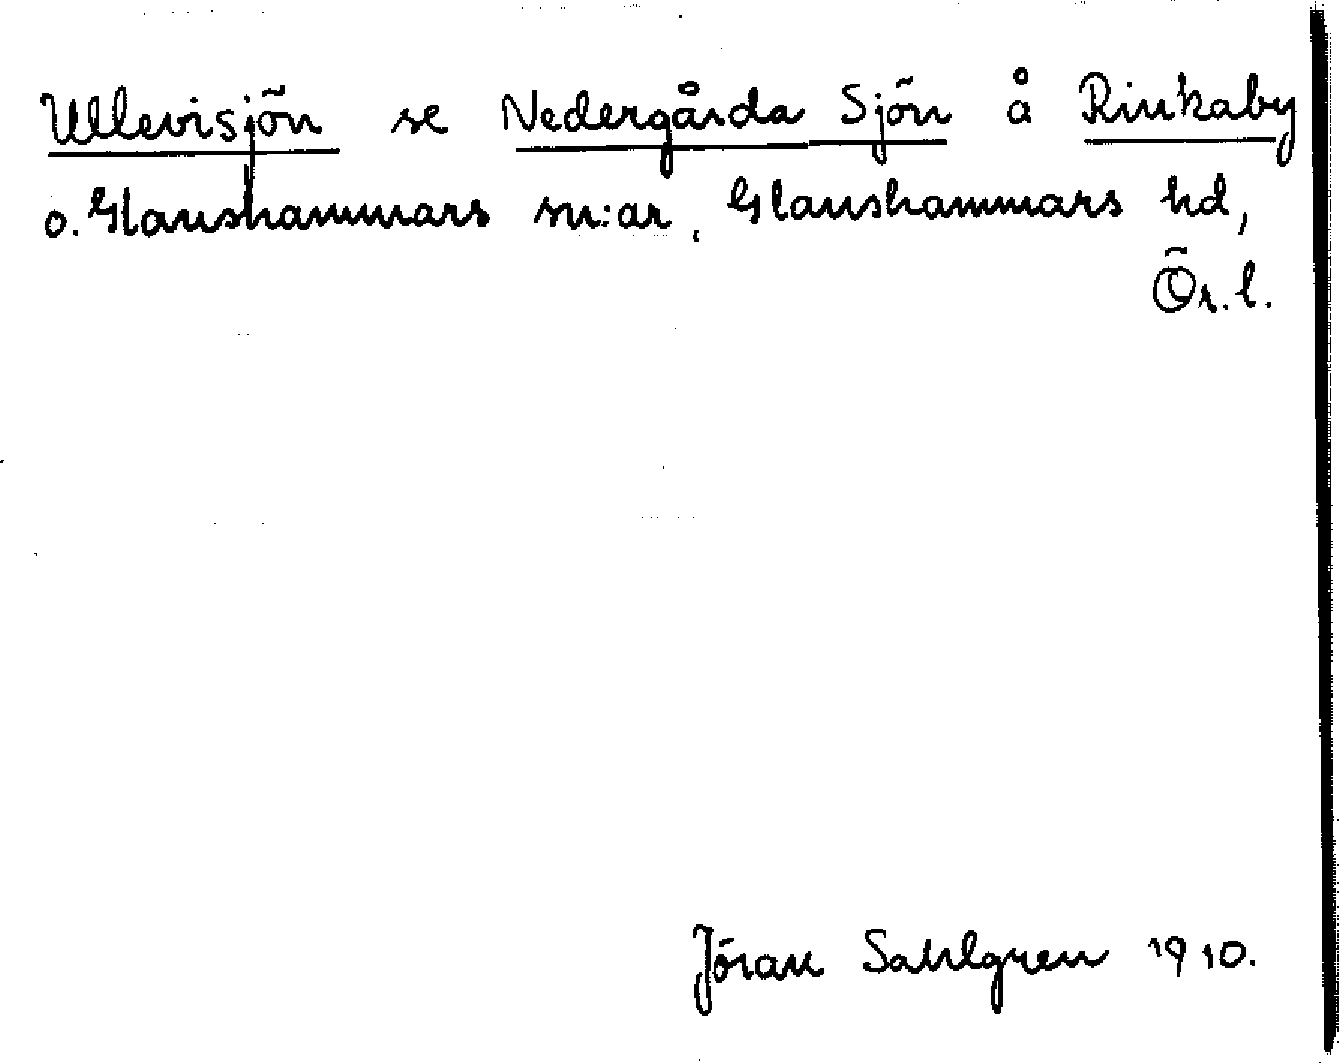 Ullevisjön se Nedergårda Sjön å Rinkaby
o. Glanshammars sn:ar, Glanshammars hd,
Ör. l.
Jöran Sahlgren 1910.